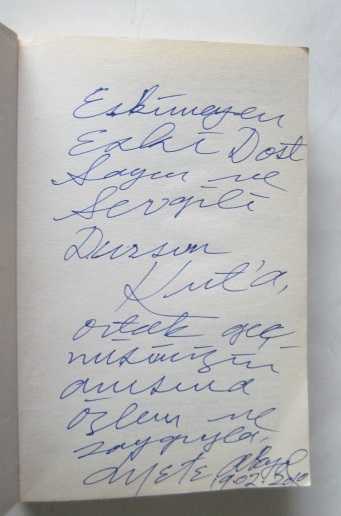 Eskimeyen
Eski Dost
Sayın ve
Sevgili
Dursun
Kut'a,
ortak geç-
mişimizin
anısına
özlem ve
saygıyla,